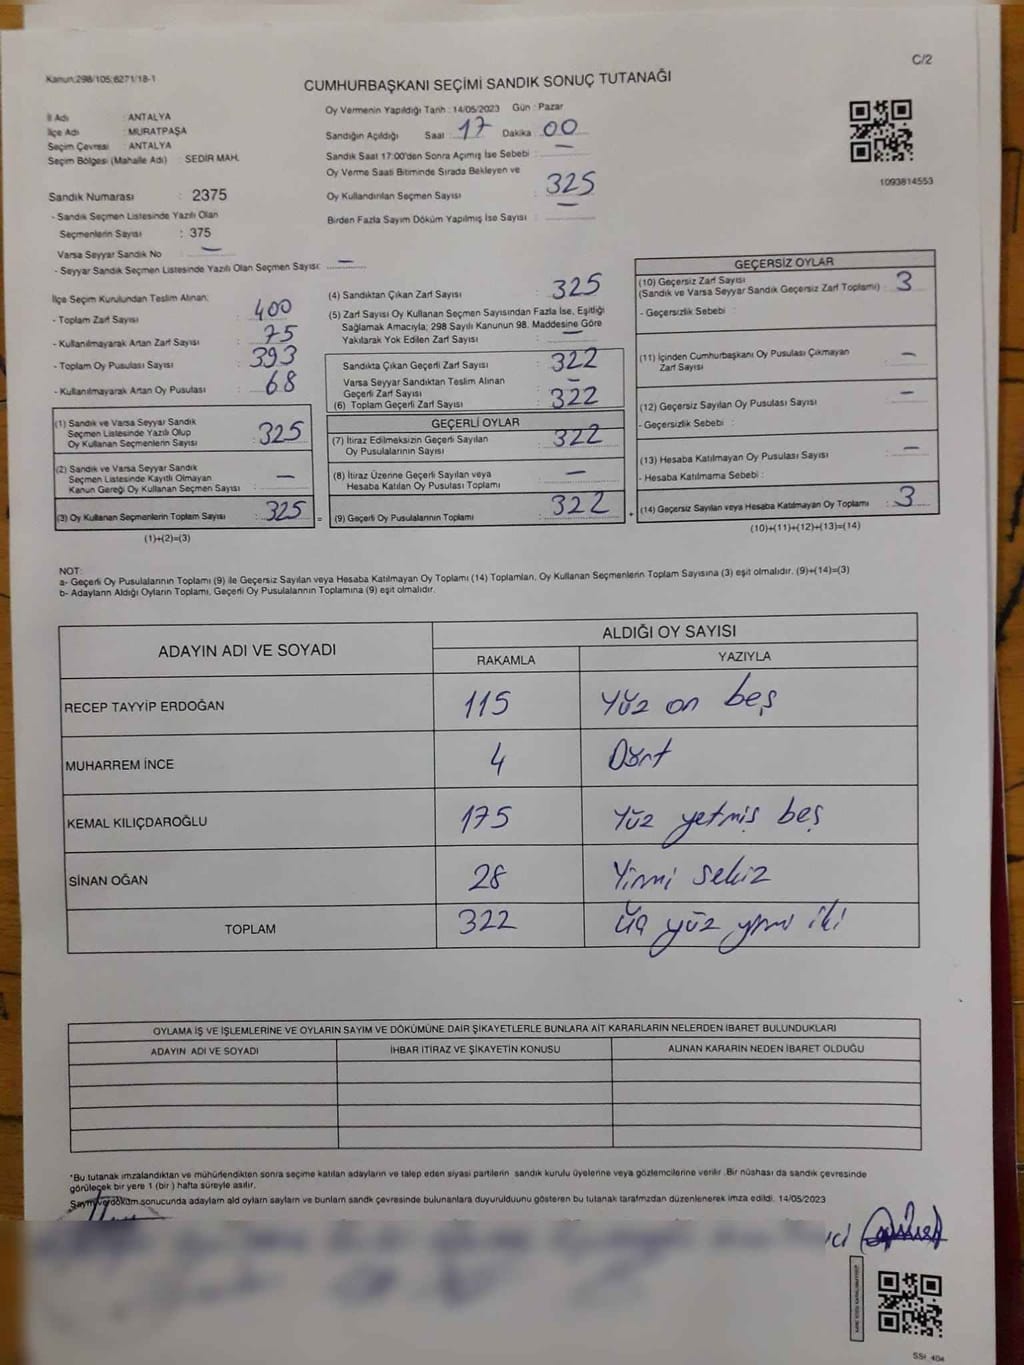 Kanun:298/105;6271/18-1
C/2
CUMHURBAŞKANI SEÇİMİ SANDIK SONUÇ TUTANAĞI
İl Adı : ANTALYA
İlçe Adı : MURATPAŞA
Seçim Çevresi : ANTALYA
Seçim Bölgesi (Mahalle Adı) : SEDİR MAH.
Sandık Numarası : 2375
- Sandık Seçmen Listesinde Yazılı Olan
Seçmenlerin Sayısı : 375
Varsa Seyyar Sandık No : —
- Seyyar Sandık Seçmen Listesinde Yazılı Olan Seçmen Sayısı: —
Oy Vermenin Yapıldığı Tarih : 14/05/2023 Gün : Pazar
Sandığın Açıldığı Saat : 17 Dakika : 00
Sandık Saat 17:00'den Sonra Açımış İse Sebebi : —
Oy Verme Saati Bitiminde Sırada Bekleyen ve
Oy Kullandırılan Seçmen Sayısı : 325
Birden Fazla Sayım Döküm Yapılmış İse Sayısı : —
1093814553
İlçe Seçim Kurulundan Teslim Alınan:
- Toplam Zarf Sayısı : 400
- Kullanılmayarak Artan Zarf Sayısı : 75
- Toplam Oy Pusulası Sayısı : 393
- Kullanılmayarak Artan Oy Pusulası : 68
(1) Sandık ve Varsa Seyyar Sandık
Seçmen Listesinde Yazılı Olup
Oy Kullanan Seçmenlerin Sayısı : 325
(2) Sandık ve Varsa Seyyar Sandık
Seçmen Listesinde Kayıtlı Olmayan
Kanun Gereği Oy Kullanan Seçmen Sayısı : —
(3) Oy Kullanan Seçmenlerin Toplam Sayısı : 325
(1)+(2)=(3)
=
(4) Sandıktan Çıkan Zarf Sayısı : 325
(5) Zarf Sayısı Oy Kullanan Seçmen Sayısından Fazla İse, Eşitliği
Sağlamak Amacıyla; 298 Sayılı Kanunun 98. Maddesine Göre
Yakılarak Yok Edilen Zarf Sayısı : —
Sandıkta Çıkan Geçerli Zarf Sayısı : 322
Varsa Seyyar Sandıktan Teslim Alınan
Geçerli Zarf Sayısı : —
(6) Toplam Geçerli Zarf Sayısı : 322
GEÇERLİ OYLAR
(7) İtiraz Edilmeksizin Geçerli Sayılan
Oy Pusulasının Sayısı : 322
(8) İtiraz Üzerine Geçerli Sayılan veya
Hesaba Katılan Oy Pusulası Toplamı : —
(9) Geçerli Oy Pusulalarının Toplamı : 322
+
GEÇERSİZ OYLAR
(10) Geçersiz Zarf Sayısı
(Sandık ve Varsa Seyyar Sandık Geçersiz Zarf Toplamı) : 3
- Geçersizlik Sebebi :
(11) İçinden Cumhurbaşkanı Oy Pusulası Çıkmayan
Zarf Sayısı : —
(12) Geçersiz Sayılan Oy Pusulası Sayısı : —
- Geçersizlik Sebebi :
(13) Hesaba Katılmayan Oy Pusulası Sayısı : —
- Hesaba Katılmama Sebebi :
(14) Geçersiz Sayılan veya Hesaba Katılmayan Oy Toplamı : 3
(10)+(11)+(12)+(13)=(14)
NOT:
a- Geçerli Oy Pusulalarının Toplamı (9) ile Geçersiz Sayılan veya Hesaba Katılmayan Oy Toplamı (14) Toplamları, Oy Kullanan Seçmenlerin Toplam Sayısına (3) eşit olmalıdır. (9)+(14)=(3)
b- Adayların Aldığı Oyların Toplamı, Geçerli Oy Pusulalarının Toplamına (9) eşit olmalıdır.
ADAYIN ADI VE SOYADI
ALDIĞI OY SAYISI
RAKAMLA YAZIYLA
RECEP TAYYİP ERDOĞAN 115 Yüz on beş
MUHARREM İNCE 4 Dört
KEMAL KILIÇDAROĞLU 175 Yüz yetmiş beş
SİNAN OĞAN 28 Yirmi sekiz
TOPLAM 322 Üç yüz yirmi iki
OYLAMA İŞ VE İŞLEMLERİNE VE OYLARIN SAYIM VE DÖKÜMÜNE DAİR ŞİKAYETLERLE BUNLARA AİT KARARLARIN NELERDEN İBARET BULUNDUKLARI
ADAYIN ADI VE SOYADI İHBAR İTİRAZ VE ŞİKAYETİN KONUSU ALINAN KARARIN NEDEN İBARET OLDUĞU
*Bu tutanak imzalandıktan ve mühürlendikten sonra seçime katılan adayların ve talep eden siyasi partilerin sandık kurulu üyelerine veya gözlemcilerine verilir .Bir nüshası da sandık çevresinde
görülecek bir yere 1 (bir ) hafta süreyle asılır.
Sayım ve döküm sonucunda adayların aldı oyların sayıların ve bunların sandık çevresinde bulunanlara duyurulduunu gösteren bu tutanak tarafımzdan düzenlenerek imza edildi. 14/05/2023